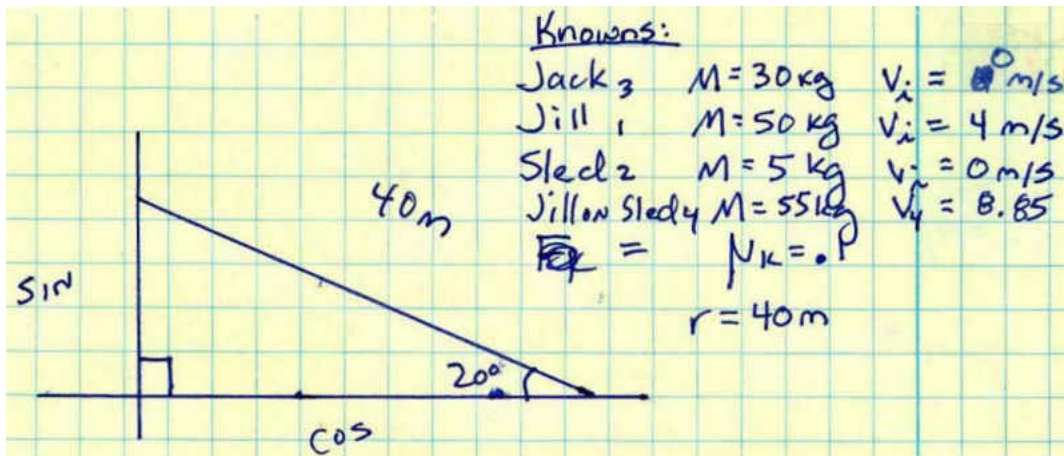 Knowns:
Jack 3 M = 30 kg Vi = 0 m/s
Jill 1 M = 50 kg Vi = 4 m/s
Sled 2 M = 5 kg Vi = 0 m/s
Jill on Sled 4 M = 55 kg V4 = 8.85
= μk = .1
r = 40 m
40 m
SIN
20°
COS